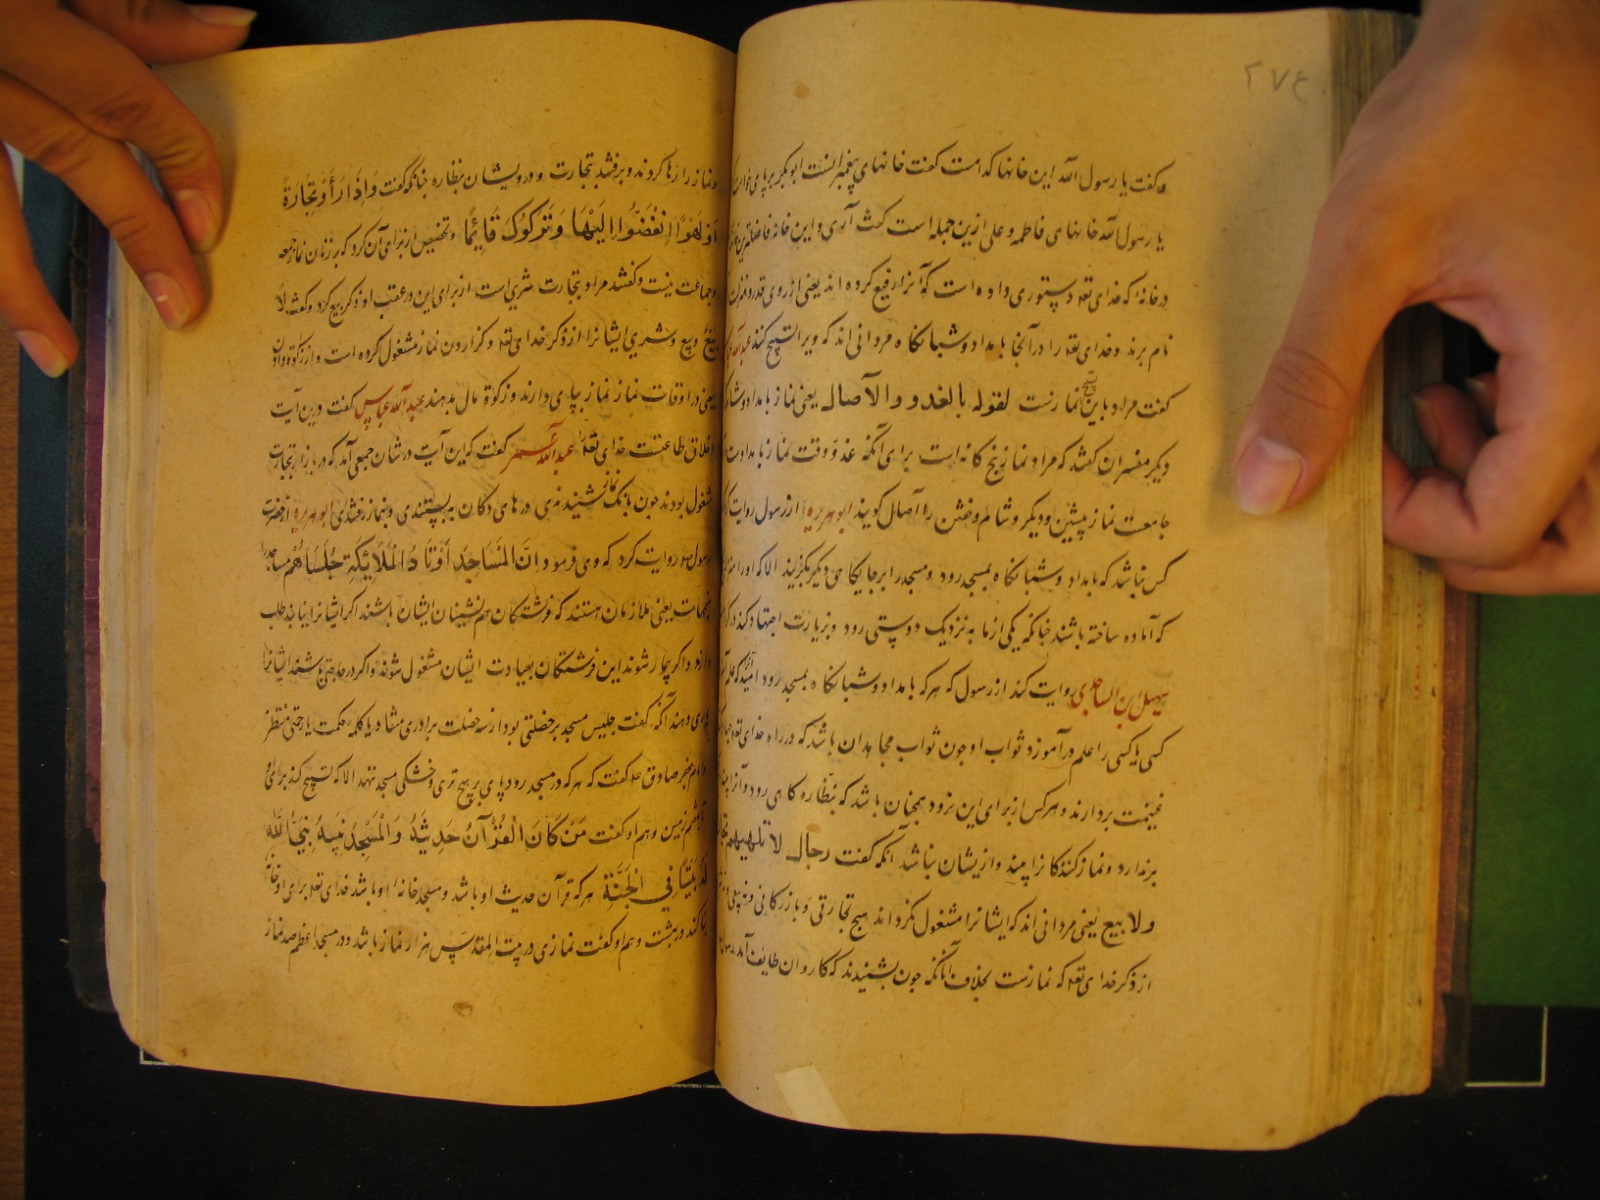 ۲۷۴
و گفت یا رسول الله این خانها کدامست گفت خانهای پیغمبرانست ابوبکر برپای
یا رسول الله خانهای فاطمه و علی ازین جمله است گفت آری و این خانه
در خانه که خدای تعه دستوری داده است که آنرا رفیع کرده اند یعنی از روی قدر و منزلت
نام برند و خدای تعه را در آنجا بامداد و شبانگاه مردانی اند که ویرا تسبیح کنند عبدالله
گفت مراد باین تسبیح نمازست لقوله بالغدو والآصال یعنی نماز بامداد و
و دیگر مفسران گفتند که مراد نماز پنج گانه است برای آنکه غدو وقت نماز بامدادست
جامعت نماز پیشین و دیگر و شام و خفتن را آصال کویند ابوهریره از رسول روایت
کس نباشد که بامداد و شبانگاه بمسجد رود و مسجد را بر جایکاهی دیگر بکزیند الا که او را
که آماده ساخته باشند چنانکه یکی از ما به نزدیک دوستی رود و بزیارت اجتهاد کند در
سهیل ابن الساعدی روایت کند از رسول که هر که بامداد و شبانگاه بمسجد رود
کسی یا کسی را علم درآموزد ثواب او چون ثواب مجاهدان باشد که در راه خدای تعه
غنیمت بردارند و هر کس از برای این نرود همچنان باشد که بنظاره کاهی رود و آن
برندارد و نماز کنندکانرا بیند و ازیشان نباشد آنکه گفت رجال لا تلهیهم
ولا بیع یعنی مردانی اند که ایشانرا مشغول نکرداند هیچ تجارتی و بازرکانی و نه بیعی
از ذکر خدای تعه که نمازست بخلاف آنانکه چون بشنیدند که کاروان طایف آمد
و نماز را رها کردند و برفتند بتجارت و درویشان بنظاره چنانکه گفت وَاِذَا رَأَوْا تِجَارَةً
اَوْ لَهْوًا انْفَضُّوا اِلَيْهَا وَتَرَكُوكَ قَائِمًا و تخصیص از برای آن کرد که بر زنان نماز جمعه
و جماعت نیست و گفتند مراد بتجارت شری است از برای این در عقب او ذکر بیع کرد و گفت لا
بیع و بیع و شری ایشانرا از ذکر خدای تعه و کزاردن نماز مشغول نکرده است و از زکوة دادن
یعنی در اوقات نماز نماز بپای دارند و زکوة مال بدهند عبدالله عباس گفت درین آیت
اخلاق طاعتست خدای تعه را عبدالله عمر گفت که این آیت در شان جمعی آمد که در بازار بتجارت
مشغول بودند چون بانک نماز شنیدندی درهای دکان به بستندی و بنماز رفتندی ابوهریره از حضرت
رسول صه روایت کرد که وی فرمود اِنَّ الْمَسَاجِدَ اَوْتَادُ الْمَلَائِكَةِ جُلَسَاؤُهُمْ
یعنی ملازمان هستند که فرشتکان هم نشینان ایشان باشند اکر ایشانرا نیابند طلب
دارند و اکر بیمار شوند این فرشتکان بعیادت ایشان مشغول شوند و اکر در حاجتی باشند ایشانرا
یاری دهند آنکه گفت جلیس مسجد بر خصلتی بود از سه خصلت برادری مستفاد یا کلمه حکمت یا رحمتی منتظر
و امام جعفر صادق عه گفت که هر که در مسجد رود پای بر هیچ تری و خشکی مسجد ننهد الا که تسبیح کند برای او
تا هفتم زمین و هم او گفت مَنْ كَانَ الْقُرْآنُ حَدِيثُهُ وَالْمَسْجِدُ بَيْتَهُ بَنَى اللَّهُ
لَهُ بَيْتًا فِي الْجَنَّةِ هر که قرآن حدیث او باشد و مسجد خانه او باشد خدای تعه برای او خانه
بنا کند در بهشت و هم او گفت نمازی در بیت المقدس هزار نماز باشد و در مسجد اعظم صد نماز